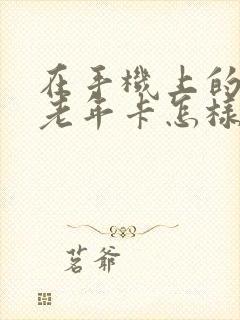 在手機上的
老年卡怎樣
茗爺